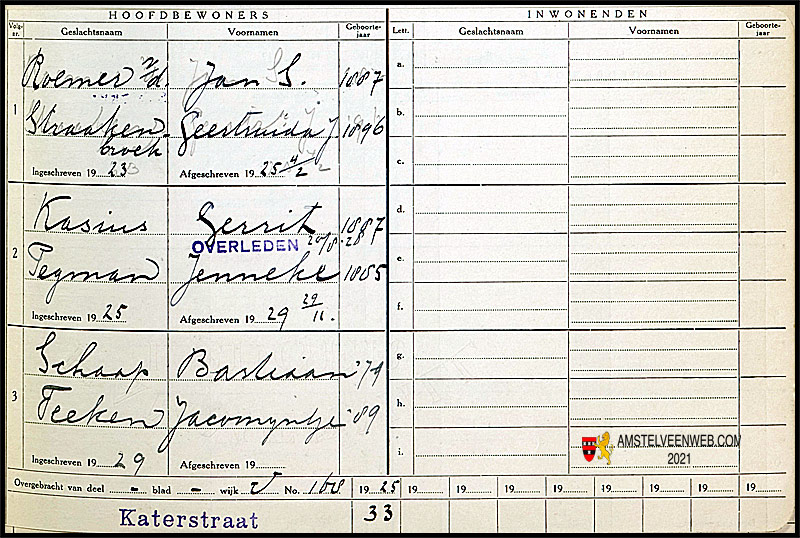 HOOFDBEWONERS INWONENDEN
Volg-nr. Geslachtsnaam Voornamen Geboorte-jaar Lett. Geslachtsnaam Voornamen Geboorte-jaar
Roemer v/d. Jan S. 1887 a.
1 Straaken- Geertruida J 1896 b.
broek c.
Ingeschreven 19 23 Afgeschreven 19 25 4/2
Kasius Gerrit 1887 d.
OVERLEDEN 20/8-28
2 Tegman Jenneke 1885 e.
f.
Ingeschreven 19 25 Afgeschreven 19 29 29/11.
Schaap Bastiaan '79 g.
3 Teeken Jacomyntje '89 h.
Ingeschreven 19 29 Afgeschreven 19 i.
AMSTELVEENWEB.COM
2021
Overgebracht van deel - blad - wijk V No. 108 19 25 19 19 19 19 19 19 19 19
Katerstraat 33